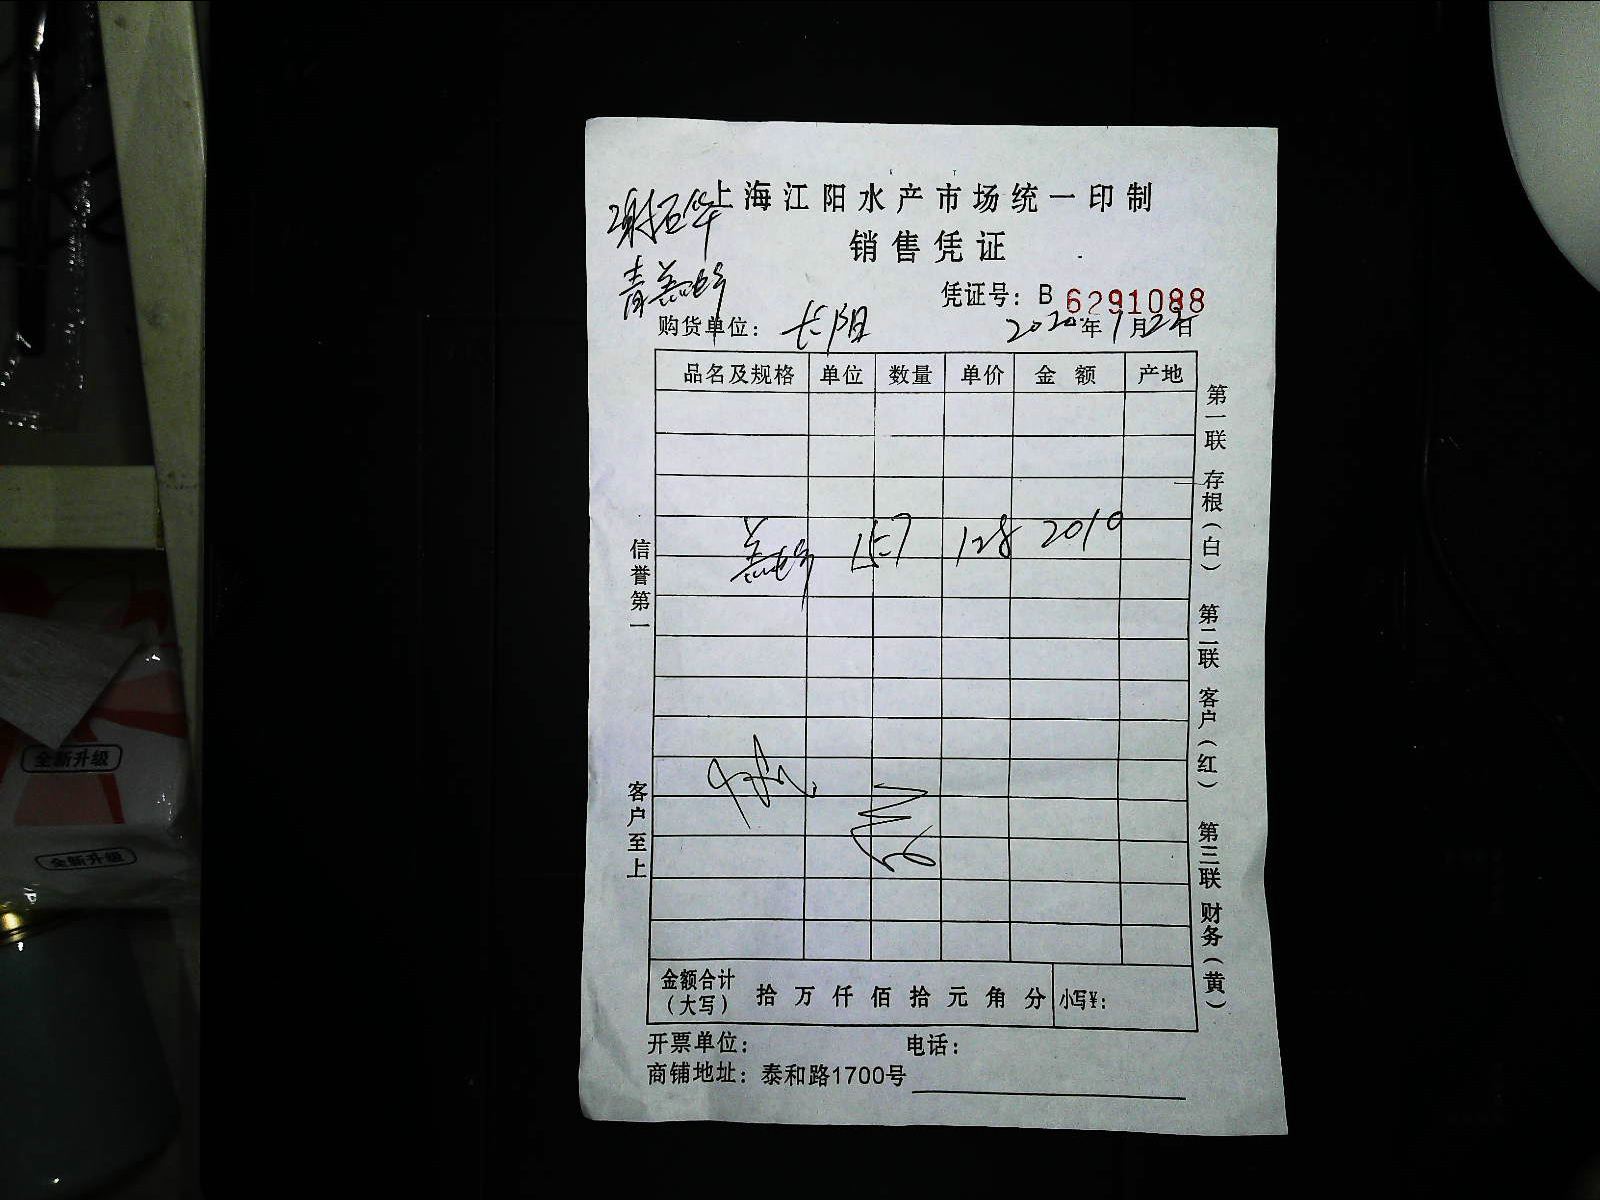 上海江阳水产市场统一印制
销售凭证
凭证号：B 6291088
购货单位：长阳 2020年1月22日
品名及规格 单位 数量 单价 金 额 产地
15.7 128 2010
金额合计（大写） 拾 万 仟 佰 拾 元 角 分 小写¥：
开票单位： 电话：
商铺地址：泰和路1700号
信誉第一
客户至上
第一联 存根（白） 第二联 客户（红） 第三联 财务（黄）
全新升级
全新升级